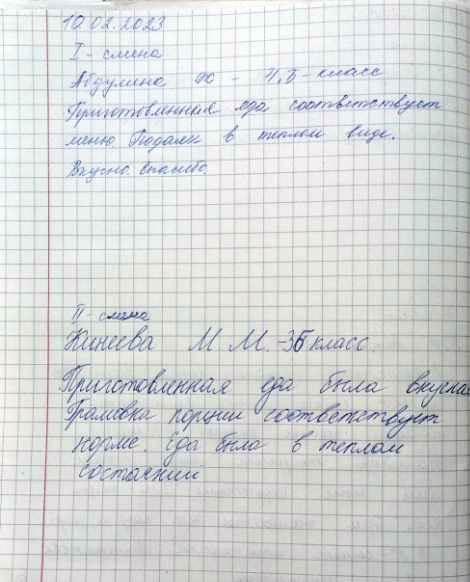 10.02.2023
I - смена
Абдулина Ю - 4,Б - класс
Приготовленная еда соответствует
меню Подали в теплом виде.
Вкусно. Спасибо.
II - смена
Кинеева М М. - 3Б класс.
Приготовленная еда была вкусная
Грамовка порции соответствует
норме. Еда была в теплом
состаянии